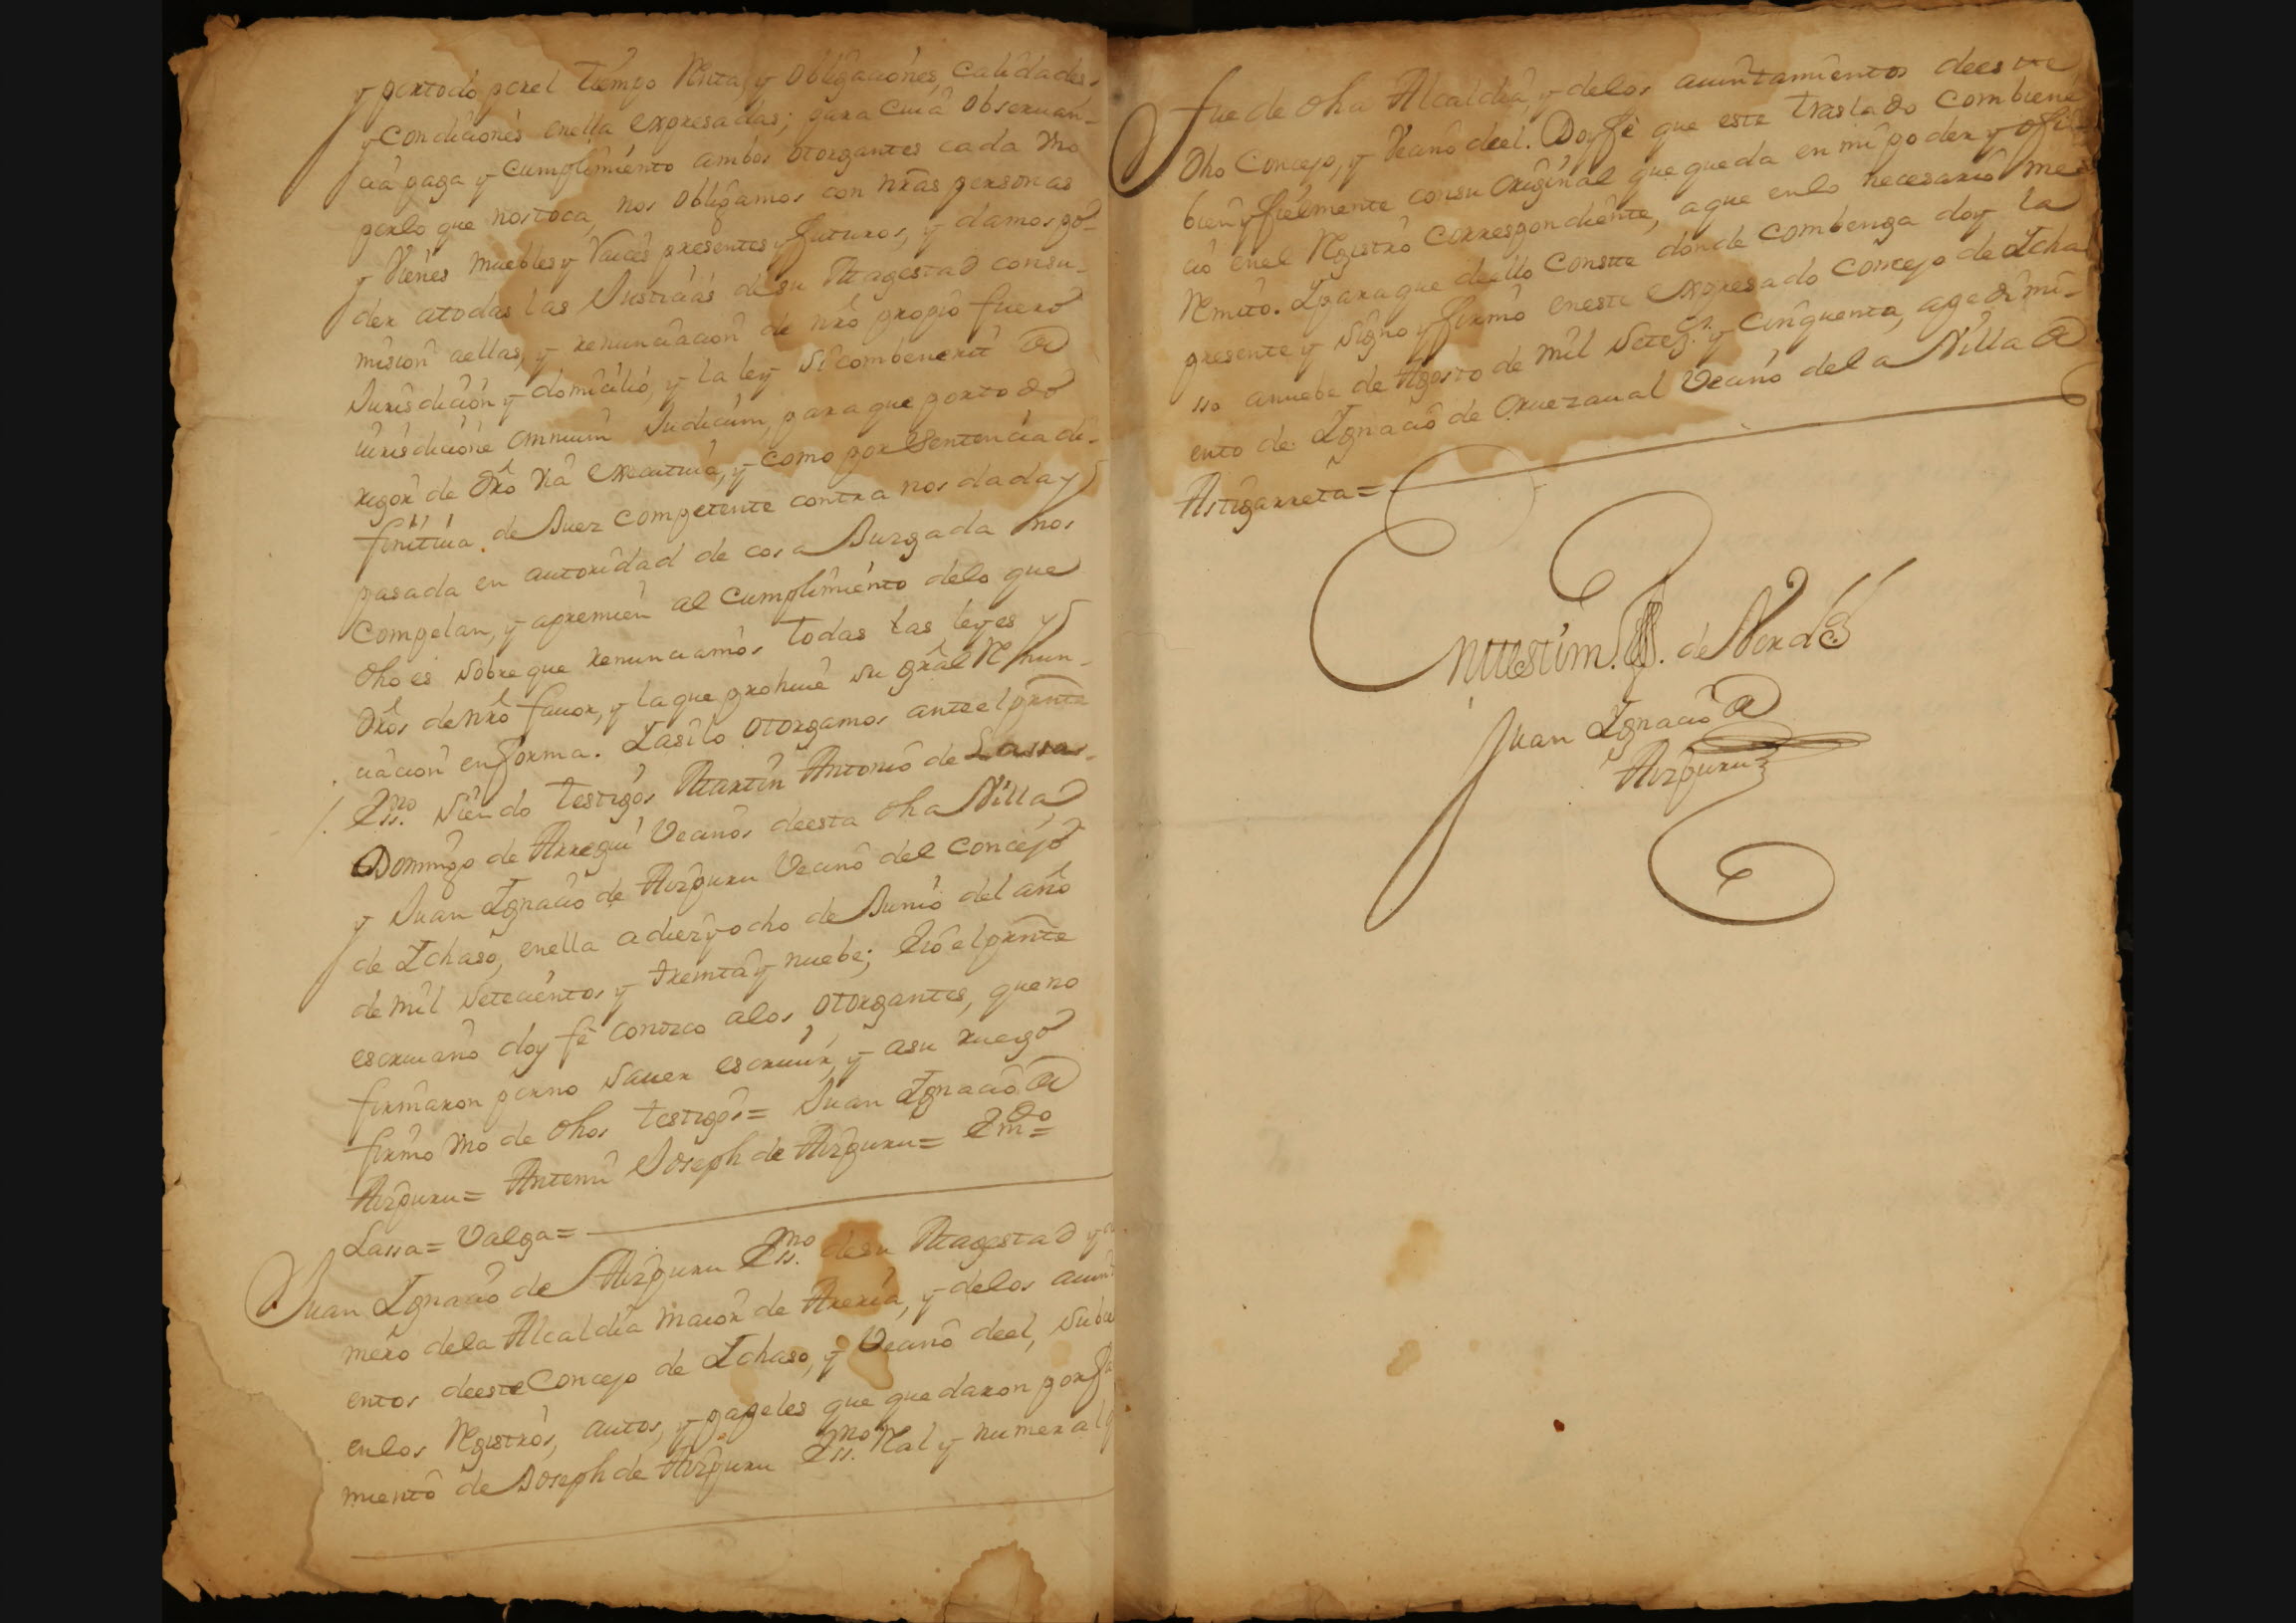 y portodo porel tiempo Renta, y obligaciones, calidades,
y condiciones enella expresadas; para cuia obseruan-
cia paga y cumplimiento ambos otorgantes cada vno
porlo que nostoca, nos obligamos con nrãs personas
y vienes muebles y raices presentes y futuros, y damos po-
der atodas las Justicias de su Magestad consu-
mision aellas, y renunciacion de nrõ propio fuero
Jurisdicion y domicilio, y la ley si combenerit de
iurisdicione omnium Judicum, paraque portodo
rigor de drõ via executiua, y como por sentencia di-
finitiua de Juez competente contra nos dada y
pasada en autoridad de cosa Juzgada nos
compelan, y apremien al cumplimiento delo que
dho es sobre que renunciamos todas las leyes y
drõs de nrõ fauor, y la que prohiue su grãl Renun-
ciacion enforma. Iasilo otorgamos anteel preste
ssno. siendo testigos Martin Antonio de Lassa,
Domingo de Arregui Vecinos deesta dha Villa,
y Juan Ignacio de Aizpuru Vecino del concejo
de Ichaso, enella adiez y ocho de Junio del año
de mil setecientos y treinta y nuebe; Eio el prnte
escriuano doy fé conozco alos otorgantes, que no
firmaron porno sauer escriuir, y asu ruego
firmo vno de dhos testigos= Juan Ignacio de
Aizpuru= Antemi Joseph de Aizpuru= Emdo=
Lassa= Valga=
Juan Ignacio de Aizpuru Essno. desu Magestad y
mero dela Alcaldia maior de Areria, y delos aiun
entos deeste Concejo de Ichaso, y Vecino deel, sub
enlos Registros, autos, y papeles que quedaron porfa
miento de Joseph de Aizpuru Essno. Ral y numeral q
fue de dha Alcaldia, y delos aiuntamientos deeste
dho Concejo, y Vecino deel. Doy fé que este traslado combiene
bien y fielmente consu original que queda en mi poder y ofi-
cio enel Registro correspondiente, aque enlo necesario me
Remito. Iparaque deello conste donde combenga doy la
presente y signo y firmo eneste expresado Concejo de Icha
sso anuebe de Agosto de mil setezs. y cinquenta, apedimi-
ento de Ignacio de Oruezaual Vecino dela Villa de
Astigarreta=
En testim. de Verdd
Juan Ignacio de
Aizpuru